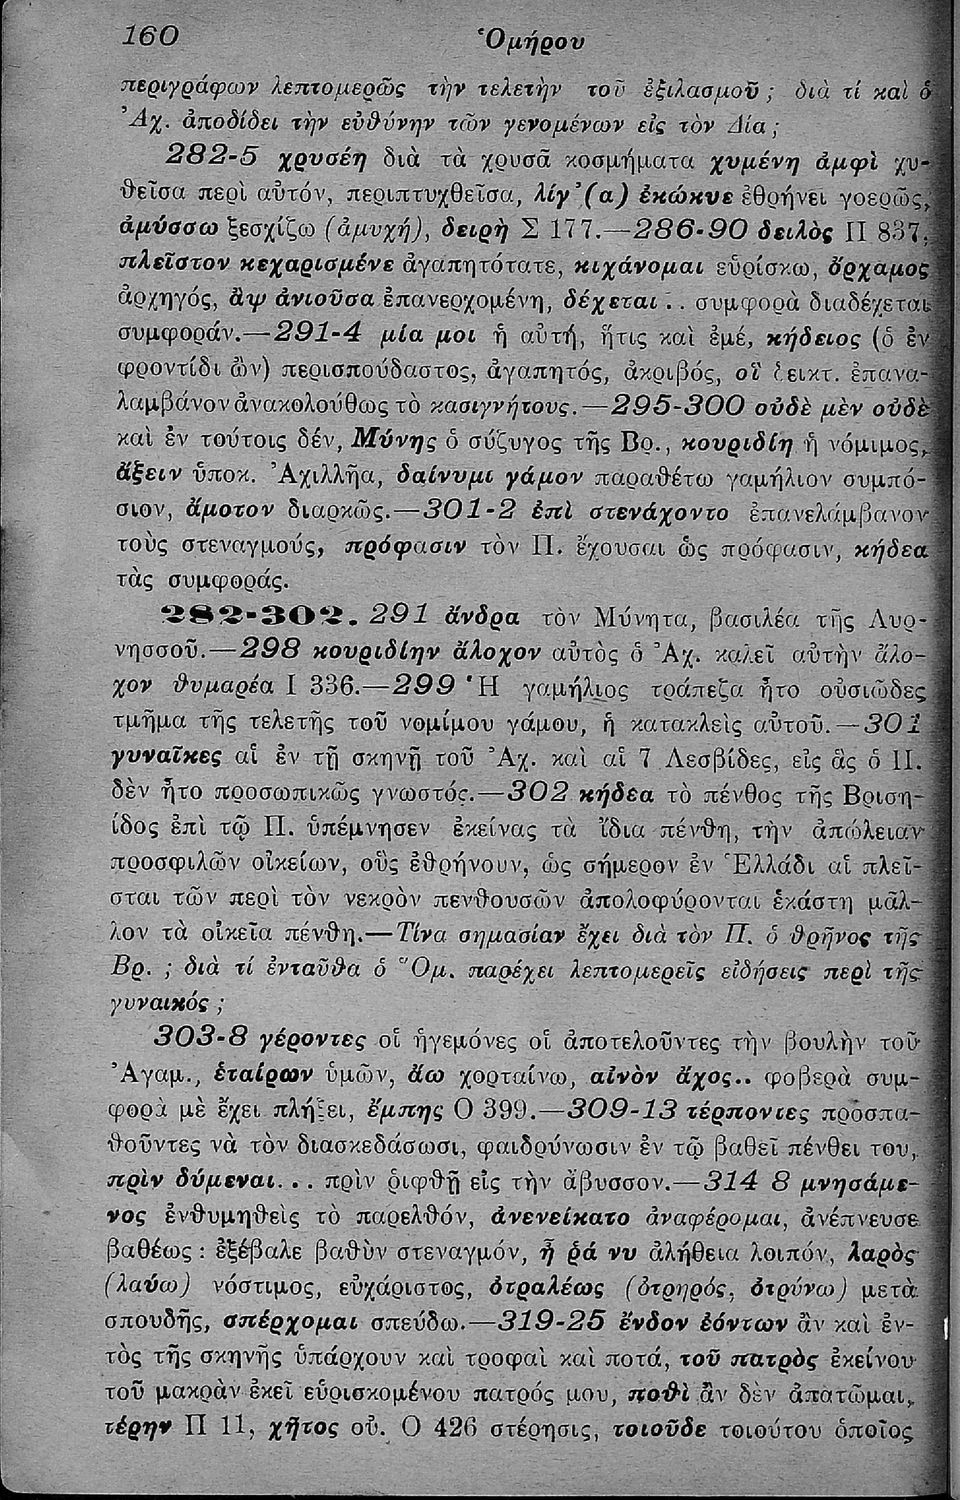 160 Ὁμήρου
περιγράφων λεπτομερῶς τὴν τελετὴν τοῦ ἐξιλασμοῦ ; διὰ τί καὶ ὁ
Ἀχ. ἀποδίδει τὴν εὐθύνην τῶν γενομένων εἰς τὸν Δία ;
282-5 χρυσέη διὰ τὰ χρυσᾶ κοσμήματα χυμένη ἀμφὶ χυ-
θεῖσα περὶ αὐτόν, περιπτυχθεῖσα, λίγ’(α) ἐκώκυε ἐθρήνει γοερῶς,
ἀμύσσω ξεσχίζω (ἀμυχή), δειρὴ Σ 177.—286-90 δειλὸς Π 837,
πλεῖστον κεχαρισμένε ἀγαπητότατε, κιχάνομαι εὑρίσκω, ὄρχαμος
ἀρχηγός, ἂψ ἀνιοῦσα ἐπανερχομένη, δέχεται .. συμφορὰ διαδέχεται
συμφοράν.—291-4 μία μοι ἡ αὐτή, ἥτις καὶ ἐμέ, κήδειος (ὁ ἐν
φροντίδι ὢν) περισπούδαστος, ἀγαπητός, ἀκριβός, οἳ δεικτ. ἐπανα-
λαμβάνον ἀνακολούθως τὸ κασιγνήτους.—295-300 οὐδὲ μὲν οὐδὲ
καὶ ἐν τούτοις δέν, Μύνης ὁ σύζυγος τῆς Βρ., κουριδίη ἡ νόμιμος,
ἄξειν ὑποκ. Ἀχιλλῆα, δαίνυμι γάμον παραθέτω γαμήλιον συμπό-
σιον, ἄμοτον διαρκῶς.—301-2 ἐπὶ στενάχοντο ἐπανελάμβανον
τοὺς στεναγμούς, πρόφασιν τὸν Π. ἔχουσαι ὡς πρόφασιν, κήδεα
τὰς συμφοράς.
282-302. 291 ἄνδρα τὸν Μύνητα, βασιλέα τῆς Λυρ-
νησσοῦ.—298 κουριδίην ἄλοχον αὐτὸς ὁ Ἀχ. καλεῖ αὐτὴν ἄλο-
χον θυμαρέα Ι 336.—299 Ἡ γαμήλιος τράπεζα ἦτο οὐσιῶδες
τμῆμα τῆς τελετῆς τοῦ νομίμου γάμου, ἡ κατακλεὶς αὐτοῦ.—301
γυναῖκες αἱ ἐν τῇ σκηνῇ τοῦ Ἀχ. καὶ αἱ 7 Λεσβίδες, εἰς ἃς ὁ Π.
δὲν ἦτο προσωπικῶς γνωστός.—302 κήδεα τὸ πένθος τῆς Βριση-
ίδος ἐπὶ τῷ Π. ὑπέμνησεν ἐκείνας τὰ ἴδια πένθη, τὴν ἀπώλειαν
προσφιλῶν οἰκείων, οὓς ἐθρήνουν, ὡς σήμερον ἐν Ἑλλάδι αἱ πλεῖ-
σται τῶν περὶ τὸν νεκρὸν πενθουσῶν ἀπολοφύρονται ἑκάστη μᾶλ-
λον τὰ οἰκεῖα πένθη.—Τίνα σημασίαν ἔχει διὰ τὸν Π. ὁ θρῆνος τῆς
Βρ. ; διὰ τί ἐνταῦθα ὁ Ὅμ. παρέχει λεπτομερεῖς εἰδήσεις περὶ τῆς
γυναικός ;
303-8 γέροντες οἱ ἡγεμόνες οἱ ἀποτελοῦντες τὴν βουλὴν τοῦ
Ἀγαμ., ἑταίρων ὑμῶν, ἄω χορταίνω, αἰνὸν ἄχος.. φοβερὰ συμ-
φορὰ μὲ ἔχει πλήξει, ἔμπης Ο 399.—309-13 τέρποντες προσπα-
θοῦντες νὰ τὸν διασκεδάσωσι, φαιδρύνωσιν ἐν τῷ βαθεῖ πένθει του,
πρὶν δύμεναι... πρὶν ῥιφθῇ εἰς τὴν ἄβυσσον.—314 8 μνησάμε-
νος ἐνθυμηθεὶς τὸ παρελθόν, ἀνενείκατο ἀναφέρομαι, ἀνέπνευσε
βαθέως : ἐξέβαλε βαθὺν στεναγμόν, ἦ ῥά νυ ἀλήθεια λοιπόν, λαρὸς
(λαύω) νόστιμος, εὐχάριστος, ὀτραλέως (ὀτρηρός, ὀτρύνω) μετὰ
σπουδῆς, σπέρχομαι σπεύδω.—319-25 ἔνδον ἐόντων ἂν καὶ ἐν-
τὸς τῆς σκηνῆς ὑπάρχουν καὶ τροφαὶ καὶ ποτά, τοῦ πατρὸς ἐκείνου
τοῦ μακρὰν ἐκεῖ εὑρισκομένου πατρός μου, ποθὶ ἂν δὲν ἀπατῶμαι,
τέρην Π 11, χῆτος οὗ. Ο 426 στέρησις, τοιοῦδε τοιούτου ὁποῖος